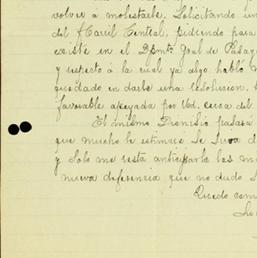 volver á molestarle. Solicitando un
del Haras Central, pidiendo para
existe en el Dpmto. Gral de
y respecto á la cual ya algo habló
quedado en darle una resolucion,
favorable apoyada por Ud. cerca del
El mismo Dionisio pasara
que mucho le estimaré se sirva d
y solo me resta anticiparle las m
nueva diferencia que no dudo
Quedo com